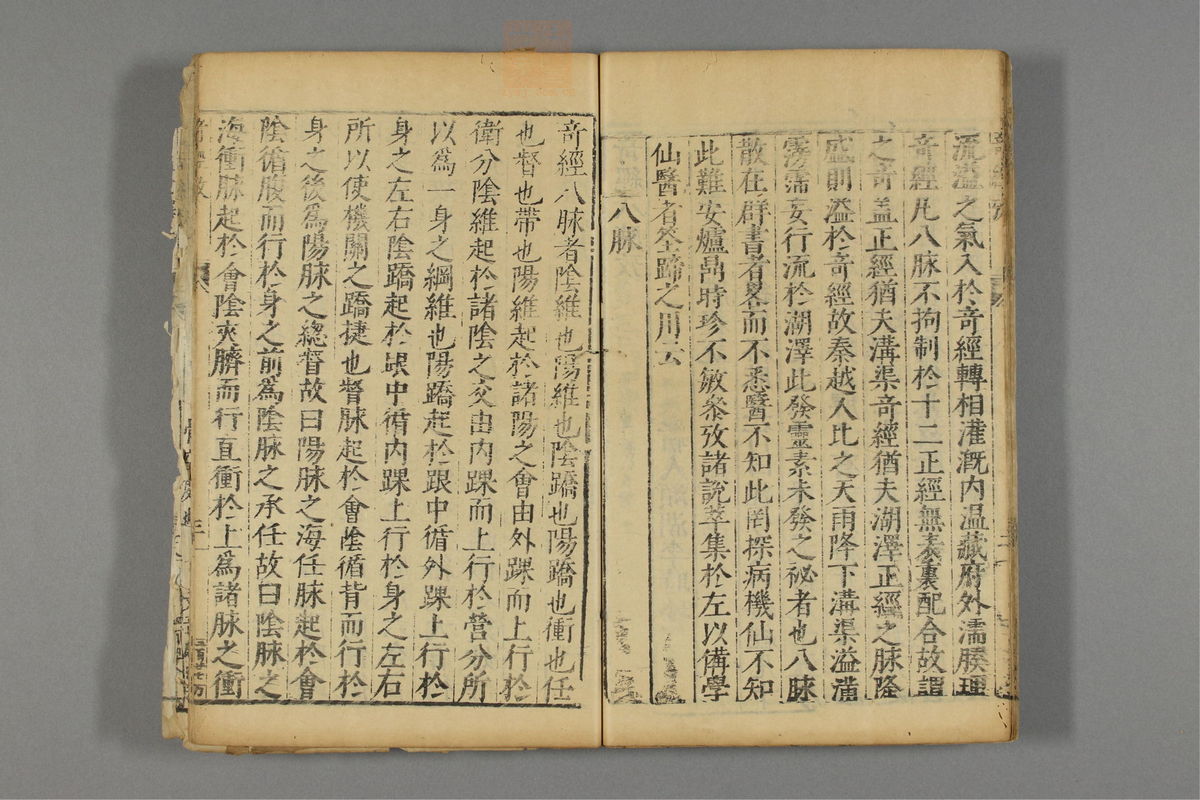 流溢之氣入於竒經轉相灌漑内温藏府外濡腠理
竒經凢八脉不拘制於十二正經無表裏配合故謂
之竒盖正經猶夫溝渠竒經猶夫湖澤正經之脉隆
盛則溢於竒經故秦越人比之天雨降下溝渠溢滿
霶霈妄行流於湖澤此發靈素未發之祕者也八脉
散在群書者畧而不悉醫不知此罔探病機仙不知
此難安爐鼎時珍不敏叅攷諸說萃集於左以備學
仙醫者筌蹄之用云
八脉
竒經八脉者陰維也陽維也陰蹻也陽蹻也衝也任
也督也帶也陽維起於諸陽之會由外踝而上行於
衛分陰維起於諸陰之交由内踝而上行於營分所
以爲一身之綱維也陽蹻起於跟中循外踝上行於
身之左右陰蹻起於跟中循内踝上行於身之左右
所以使機關之蹻捷也督脉起於會陰循背而行於
身之後爲陽脉之總督故曰陽脉之海任脉起於會
陰循腹而行於身之前爲陰脉之承任故曰陰脉之
海衝脉起於會陰夾臍而行直衝於上爲諸脉之衝